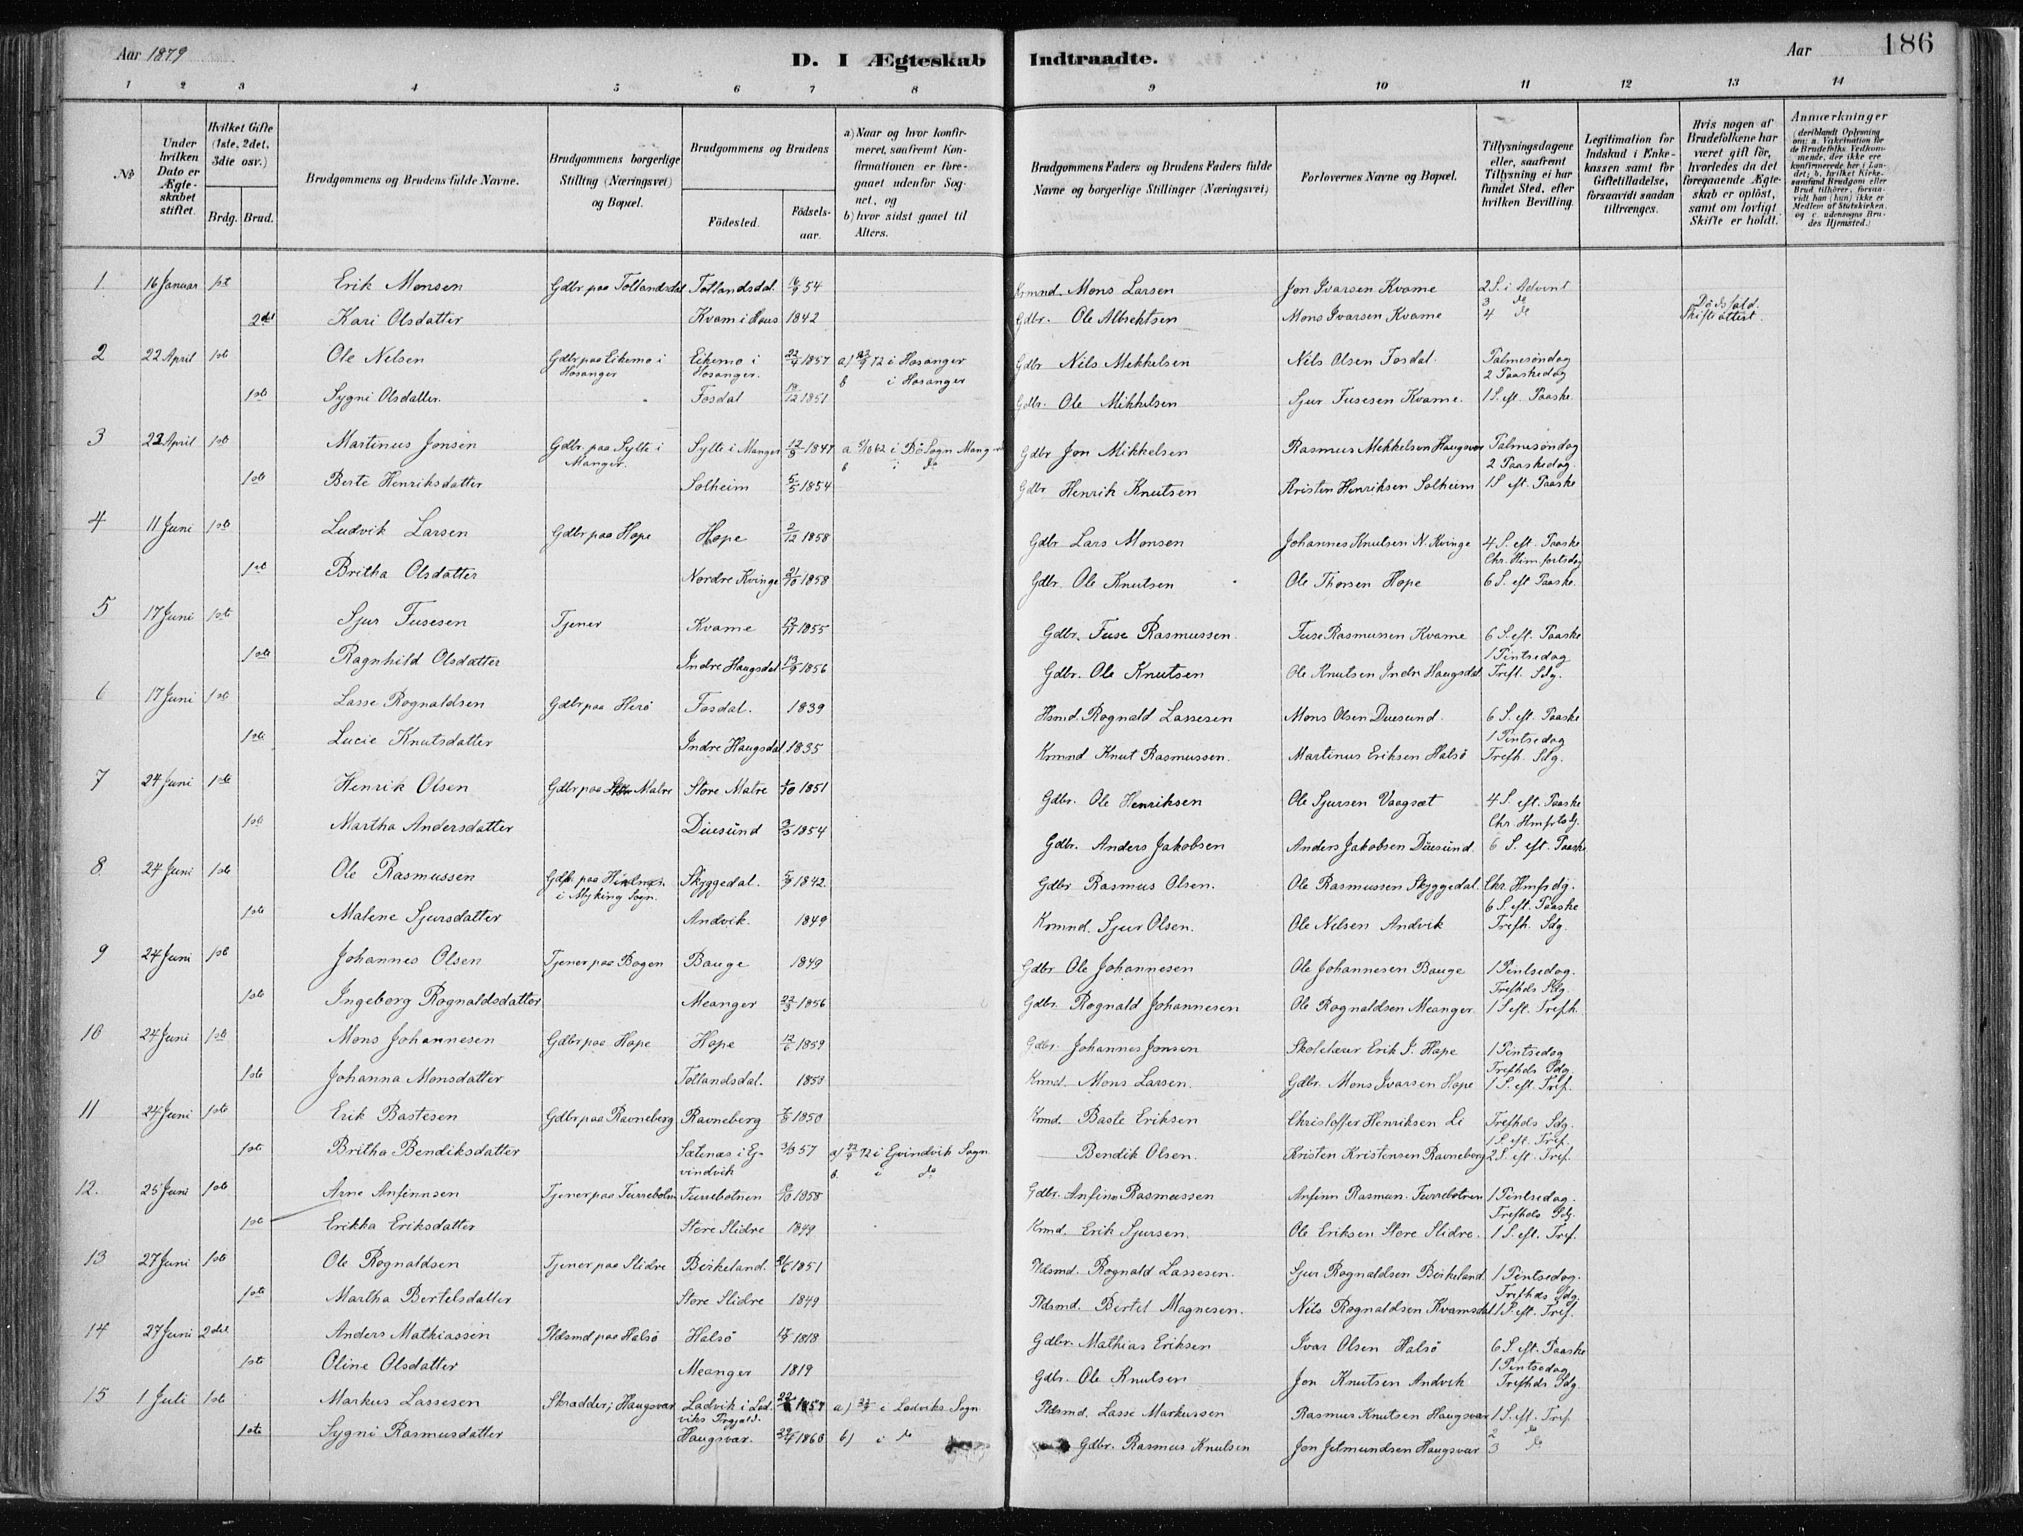 Aar 1879
D. I Ægteskab Indtraadte.
Aar
186
1 2 3 4 5 6 7 8 9 10 11 12 13 14
No
Under hvilken Dato er Ægteskabet stiftet.
Hvilket Gifte (1ste, 2det, 3die osv.)
Brdg. Brud.
Brudgommens og Brudens fulde Navne.
Brudgommens borgerlige Stilling (Næringsvei) og Bopæl.
Brudgommens og Brudens
Fødested.
Fødselsaar.
a) Naar og hvor konfirmeret, saafremt Konfirmationen er foregaaet udenfor Sognet, og
b) hvor sidst gaaet til Alters.
Brudgommens Faders og Brudens Faders fulde Navne og borgerlige Stillinger (Næringsvei)
Forlovernes Navne og Bopæl.
Tillysningsdagene eller, saafremt Tillysning ei har fundet Sted, efter hvilken Bevilling.
Legitimation for Indskud i Enkekassen samt for Giftetilladelse, forsaavidt saadan tiltrænges.
Hvis nogen af Brudefolkene har været gift før, hvorledes da det foregaaende Ægteskab er opløst, samt om lovligt Skifte er holdt.
Anmærkninger
1 16 Januar 1ste Erik Monsen Gdbr paa Tollandsdal Tollandsdal. 16/9 54 Krmnd Mons Larsen Jon Ivarsen Kvame 2 S. i Advent
3 do
2det Kari Olsdatter Kvam i Haus 1842 Gdbr. Ole Albrektsen Mons Ivarsen Kvame 4 do Dødsfald.
2 22 April 1ste Ole Nelsen Gdbr paa Eikemo i Hosanger Eikemo i Hosanger. 22/4 1857 a) 72 i Hosanger Gdbr Nils Mekkelsen Nils Olsen Fosdal. Palmesøndag
b i Hosanger 2 Paaskedag
1ste Sygni Olsdatter. Fosdal 10/12 1851 Gdbr. Ole Mikkelsen Sjur Fusesen Kvame. 1 S. eft. Paaske
3 22 April 1ste Martinus Jonsen Gdbr. paa Sylte i Manger. Sylte i Manger 1847 a 62 i Bø Sogn Manger Gdbr Jon Mikkelsen Rasmus Mekkelsen Haugsvær Palmesøndag
b i do 2 Paaskedag
1ste Berte Henriksdatter Solheim 5/5 1854 Gdbr Henrik Knutsen Kristen Henriksen Solheim 1 S. eft. Paaske
4 11 Juni 1ste Ludvik Larsen Gdbr paa Hope Hope 2/12 1858 Gdbr Lars Monsen Johannes Knutsen N. Kvinge 4 S. eft. Paaske
Chr. Himfortsdag
1ste Britha Olsdatter Nordre Kvinge 21/10 1858 Gdbr. Ole Knutsen Ole Thorsen Hope 6 S. eft Paaske.
5 17 Juni 1ste Sjur Fusesen Tjener Kvame 1855 Gdbr. Fuse Rasmussen. Fuse Rasmussen Kvame 6 S. eft. Paaske
1 Pintsedag
1ste Ragnhild Olsdatter Indre Haugsdal 1856 Gdbr. Ole Knutsen Ole Knutsen Indre Haugsdal Treft. Sdg.
6 17 Juni 1ste Lasse Rognaldsen Gdbr paa Herø Fosdal. 1839 Hsmd. Rognald Lassesen Mons Olsen Duesund. 6 S. eft. Paaske
1 Pintsedag
1ste Lucie Knutsdatter Indre Haugsdal 1835 Krmnd Knut Rasmussen. Martinus Eriksen Halsø Trefh. Sdg.
7 24 Juni 1ste Henrik Olsen Gdbr paa Store Matre Store Matre 1/10 1851 Gdbr. Ole Henriksen Ole Sjursen Vaagsæt 4 S. eft. Paaske
Chr. Hmfrtsdg.
1ste Martha Andersdatter Duesund 1854 Gdbr. Anders Jakobsen Anders Jakobsen Duesund. 6 S. eft. Paaske
8 24 Juni 1ste Ole Rasmussen i Myking Sogn. Skyggedal. 1842. Gdbr Rasmus Olsen. Ole Rasmussen Skyggedal. Chr. Hmfsdg.
6 S. eft. Paaske
1ste Malene Sjursdatter Andvik. 1849 Krmnd. Sjur Olsen. Ole Nilsen Andvik Trefh. Sdg.
9 24 Juni 1ste Johannes Olsen Tjener paa Bogen Bauge 1849 Gdbr Ole Johannesen Ole Johannesen Bauge 1 Pintsedag.
Trefhds Sdg.
1ste Ingeborg Rognaldsdatter Meanger 22/3 1856 Gdbr. Rognald Johannesen Ole Rognaldsen Meanger. 1 S. eft. Trefh.
10 24 Juni 1ste Mons Johannesen Gdbr paa Hope Hope 12/6 1859 Gdbr. Johannes Jonsen Skolelærer Erik J. Hope 1 Pintsedag
Trefhds Sdg.
1ste Johanna Monsdatter Tollandsdal. 1853 Krmd. Mons Larsen. Gdbr. Mons Ivarsen Hope 1 S. eft. Tref.
11 24 Juni 1ste Erik Bastesen Gdbr paa Ravneberg Ravneberg 1850 Krmd. Baste Eriksen Christoffer Henriksen Li Trefhds Sdg.
1 S. eft. Tref.
1ste Britha Bendiksdatter Sætenæs i Ejvindvik 3/3 57 a) 72 i Ejvindvik Sogn Bendik Olsen. Kristen Kristensen Ravneberg 2 S. eft. Tref
b. i do
12. 25 Juni 1ste Arne Anfinnsen Tjener paa Furrebotn Furrebotnen 1858 Gdbr. Anfinn Rasmussen Anfinn Rasmus. Furrebotnen 1 Pintsedag
Trefhds Sdg.
1ste Erikka Eriksdatter Store Slidre 1849 Krmd. Erik Sjursen. Ole Eriksen Store Slidre. 1 S. eft. Tref.
13 27 Juni 1ste Ole Rognaldsen Tjener paa Slidre Birkeland. 1851 Pldsmd. Rognald Lassesen. Sjur Rognaldsen Birkeland 1 Pintsedag.
Trefhds Sdg.
1ste Martha Bertelsdatter Store Slidre 1849 Pldsmd. Bertel Magnesen. Nils Rognaldsen Kvamsdal 1 S. eft. Tref.
14 27 Juni 2det Anders Mathiassen Pldsmd paa Halsø Halsø 1818 Gdbr. Mathias Eriksen Ivar Olsen Halsø 6 S. eft. Paaske
1 Pintsedag
1ste Oline Olsdatter Meanger 1819 Gdbr. Ole Knutsen Jon Knutsen Andvik Trefhds Sdg.
15 1 Juli 1ste Markus Lassesen Skrædder, Haugsvær Ladvik i Ladviks Prgjæld. 1857 a) i Ladviks Sogn Pldsmd. Lasse Markussen Rasmus Knutsen Haugsvær 1 S. eft. Tref
2 do
1ste Sygni Rasmusdatter Haugsvær. 1860 b) i do Gdbr. Rasmus Knutsen Jon Jetmundsen Haugsvær 3 do